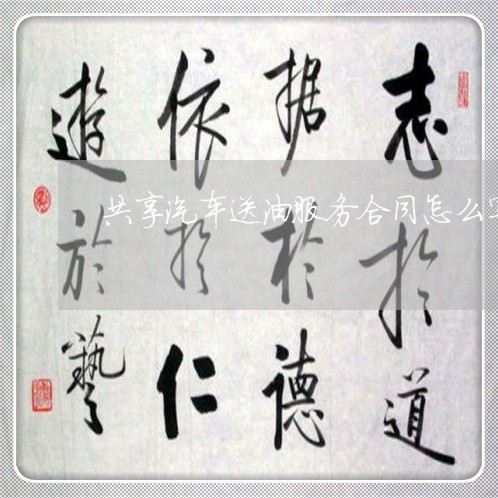 志於道
据於德
依於仁
遊於藝
共享汽车送油服务合同怎么